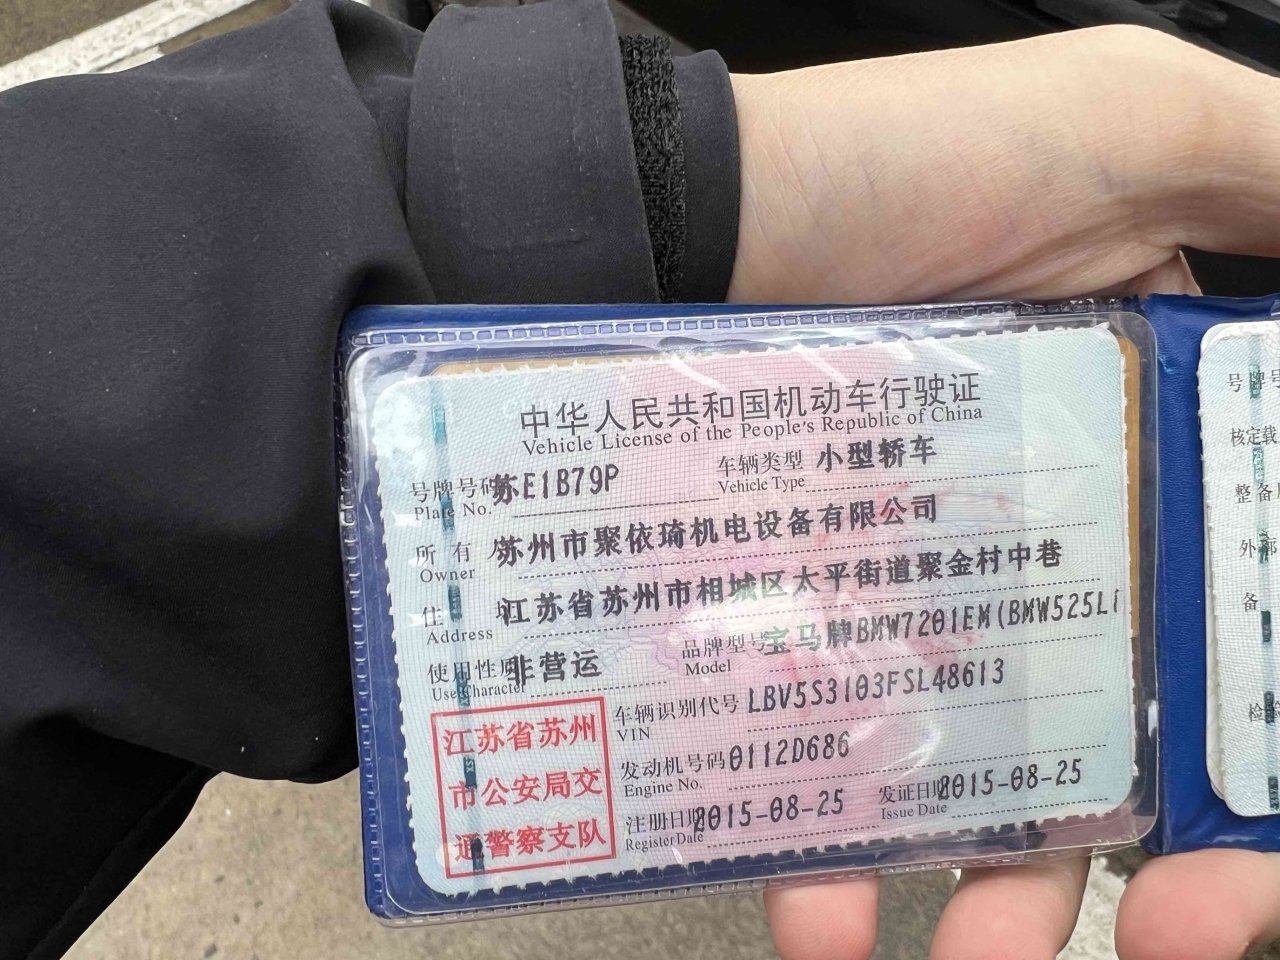 中华人民共和国机动车行驶证
Vehicle License of the People's Republic of China
号牌号码 苏E1B79P 车辆类型 小型轿车
Plate No. Vehicle Type
所有人 苏州市聚依琦机电设备有限公司
Owner
住址 江苏省苏州市相城区太平街道聚金村中巷
Address
使用性质 非营运 品牌型号 宝马牌BMW7201EM(BMW525Li
Use Character Model
车辆识别代号 LBV5S3103FSL48613
VIN
发动机号码 0112D686
Engine No.
注册日期 2015-08-25 发证日期 2015-08-25
Register Date Issue Date
江苏省苏州
市公安局交
通警察支队
号牌号
核定载
整备
外
备
检